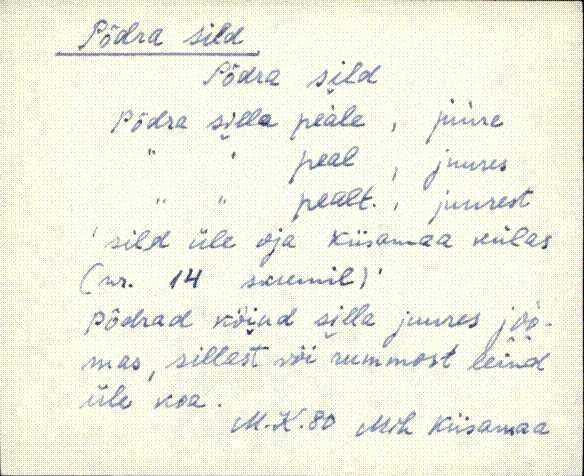 Põdra sild
Põdra sild
Põdra silla peale, juure
" " peal, juures
" " pealt., juurest
'sild üle oja Kiisamaa külas
(nr. 14 skeemil)'
põdrad kõiud silla juures joo-
mas, sillast või rummost leind
üle koa.
M.K. 80 Mih Kiisamaa